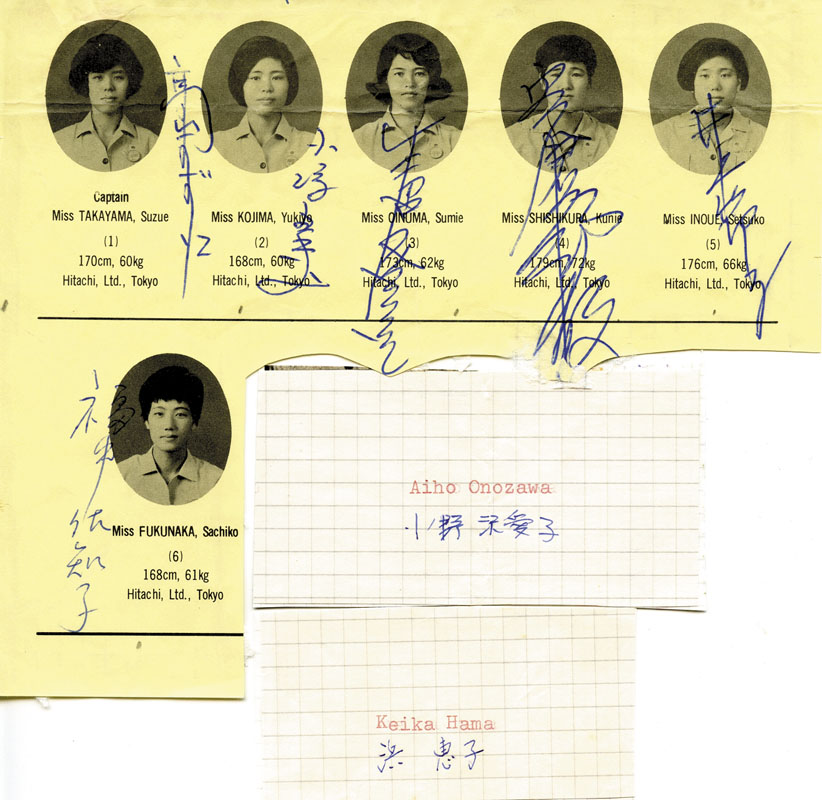 Captain
Miss TAKAYAMA, Suzue
(1)
170cm, 60kg
Hitachi, Ltd., Tokyo
Miss KOJIMA, Yukiyo
(2)
168cm, 60kg
Hitachi, Ltd., Tokyo
Miss OINUMA, Sumie
(3)
173cm, 62kg
Hitachi, Ltd., Tokyo
Miss SHISHIKURA, Kunie
(4)
179cm, 72kg
Hitachi, Ltd., Tokyo
Miss INOUE, Setsuko
(5)
176cm, 66kg
Hitachi, Ltd., Tokyo
井上節子
福中佐知子
Miss FUKUNAKA, Sachiko
(6)
168cm, 61kg
Hitachi, Ltd., Tokyo
Aiho Onozawa
小野沢愛子
Keika Hama
浜 恵子